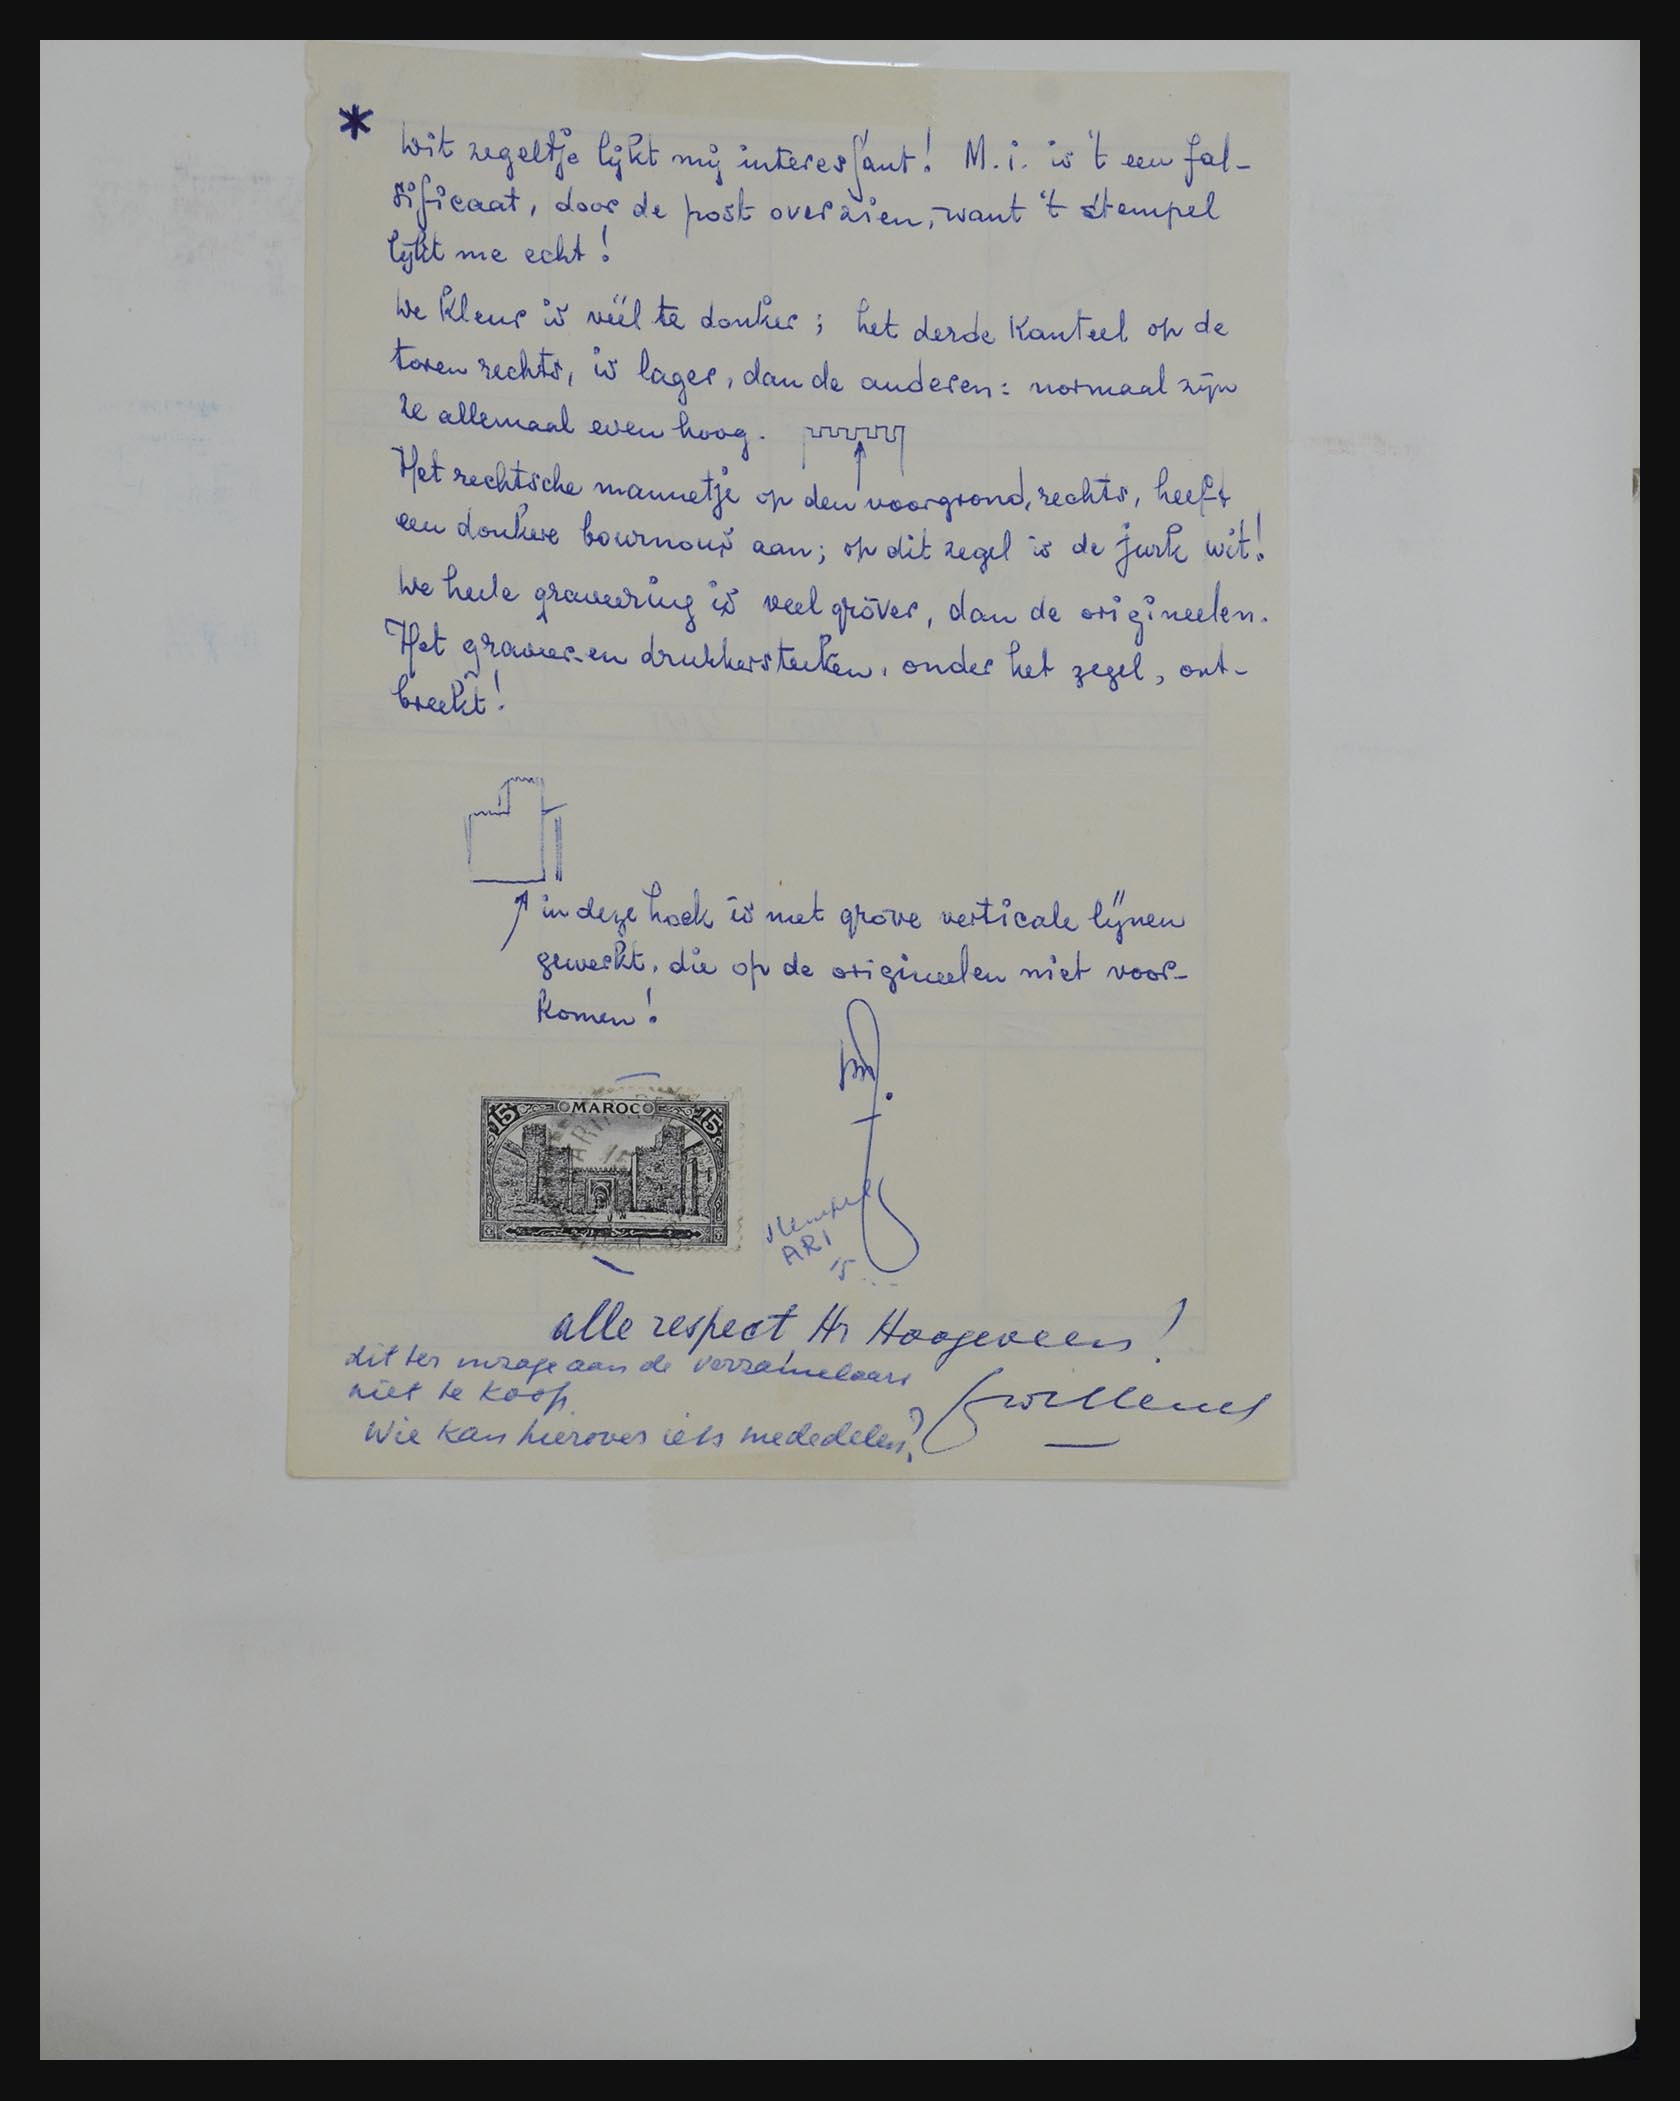 * Dit zegeltje lijkt mij interessant! M.i. is 't een fal-
sificaat, door de post overzien, want 't stempel
lijkt me echt!
De kleur is véél te donker; het derde kanteel op de
toren rechts, is lager, dan de anderen: normaal zijn
ze allemaal even hoog.
Het rechtsche mannetje op den voorgrond, rechts, heeft
een donkere bournous aan; op dit zegel is de jurk wit!
De heele graveering is veel gröver, dan de origineelen.
Het graveer- en drukkersteeken, onder het zegel, ont-
breekt!
in deze hoek is met grove verticale lijnen
gewerkt, die op de origineelen niet voor-
komen!
15 MAROC 15
stempel
ARI
15...
alle respect, Hr Hoogeveen!
dit ter inzage aan de verzamelaars
niet te koop.
Willems
Wie kan hierover iets mededelen?